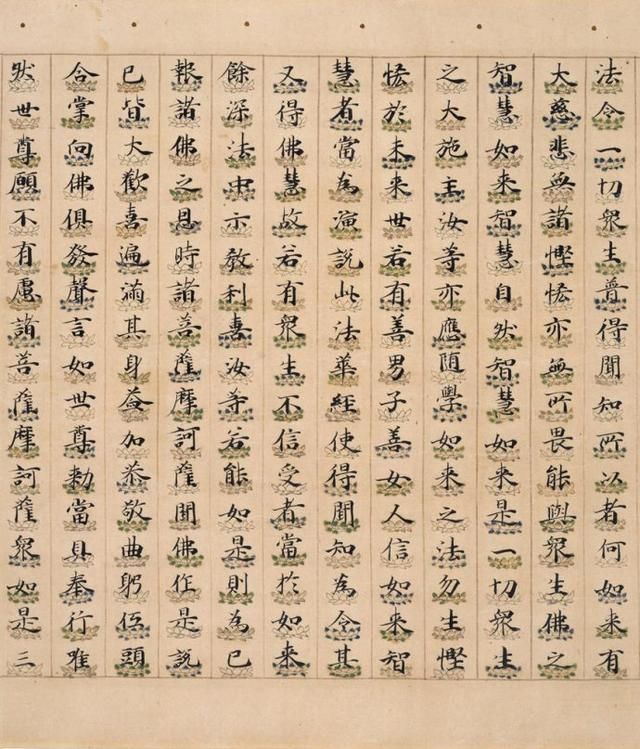 法令一切衆生普得聞知所以者何如来有
大慈悲無諸慳悋亦無所畏能與衆生佛之
智慧如来智慧自然智慧如来是一切衆生
之大施主汝等亦應随學如来之法勿生慳
悋於未来世若有善男子善女人信如来智
慧者當為演說此法華經使得聞知為令其
又得佛慧故若有衆生不信受者當於如来
餘深法中示教利喜汝等若能如是則為已
報諸佛之恩時諸菩薩摩訶薩聞佛作是說
已皆大歡喜遍滿其身益加恭敬曲躬低頭
合掌向佛俱發聲言如世尊勅當具奉行唯
然世尊願不有慮諸菩薩摩訶薩衆如是三